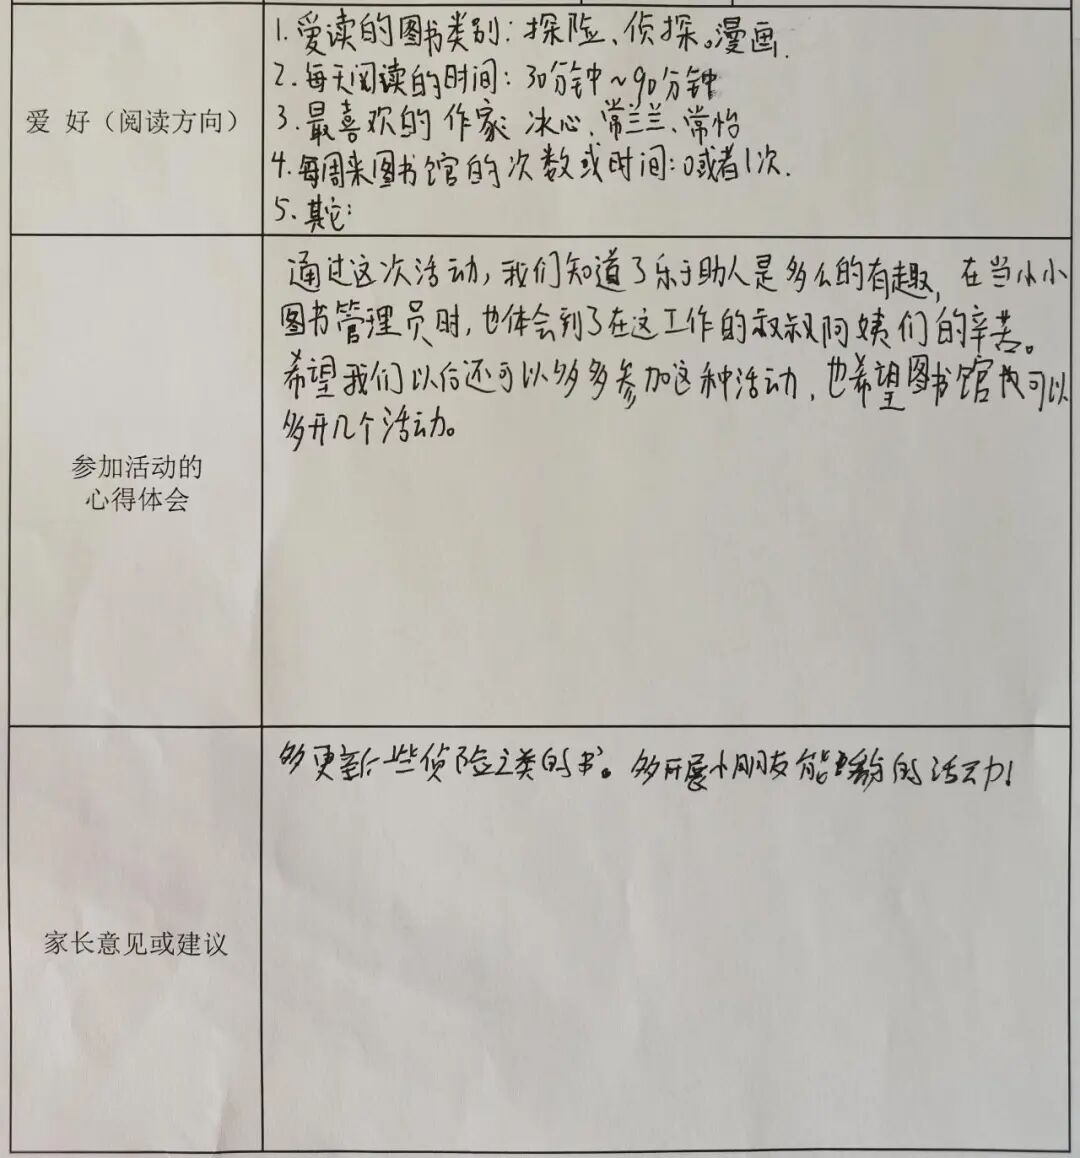 爱 好（阅读方向）
1.爱读的图书类别：探险、侦探。漫画.
2.每天阅读的时间：30分钟~90分钟
3.最喜欢的作家：冰心、常兰兰、常怡
4.每周来图书馆的次数或时间：0或者1次.
5.其它：
参加活动的
心得体会
通过这次活动，我们知道了乐于助人是多么的有趣，在当小小
图书管理员时，也体会到了在这工作的叔叔阿姨们的辛苦。
希望我们以后还可以多多参加这种活动，也希望图书馆也可以
多开几个活动。
家长意见或建议
多更新一些侦险之类的书。多开展小朋友能参与的活动！